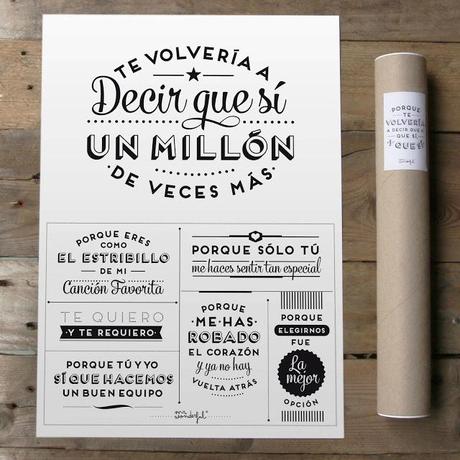 TE VOLVERÍA A
Decir que sí
UN MILLÓN
DE VECES MÁS
PORQUE ERES
COMO
EL ESTRIBILLO
DE MI
Canción Favorita
TE QUIERO
Y TE REQUIERO
PORQUE TÚ Y YO
SÍ QUE HACEMOS
UN BUEN EQUIPO
PORQUE SÓLO TÚ
me haces sentir tan especial
PORQUE
ME HAS
ROBADO
EL CORAZÓN
y ya no hay
VUELTA ATRÁS
PORQUE
ELEGIRNOS
FUE
La
mejor
OPCIÓN
mr. wonderful
PORQUE
TE
VOLVERÍA
A DECIR QUE
QUE SÍ